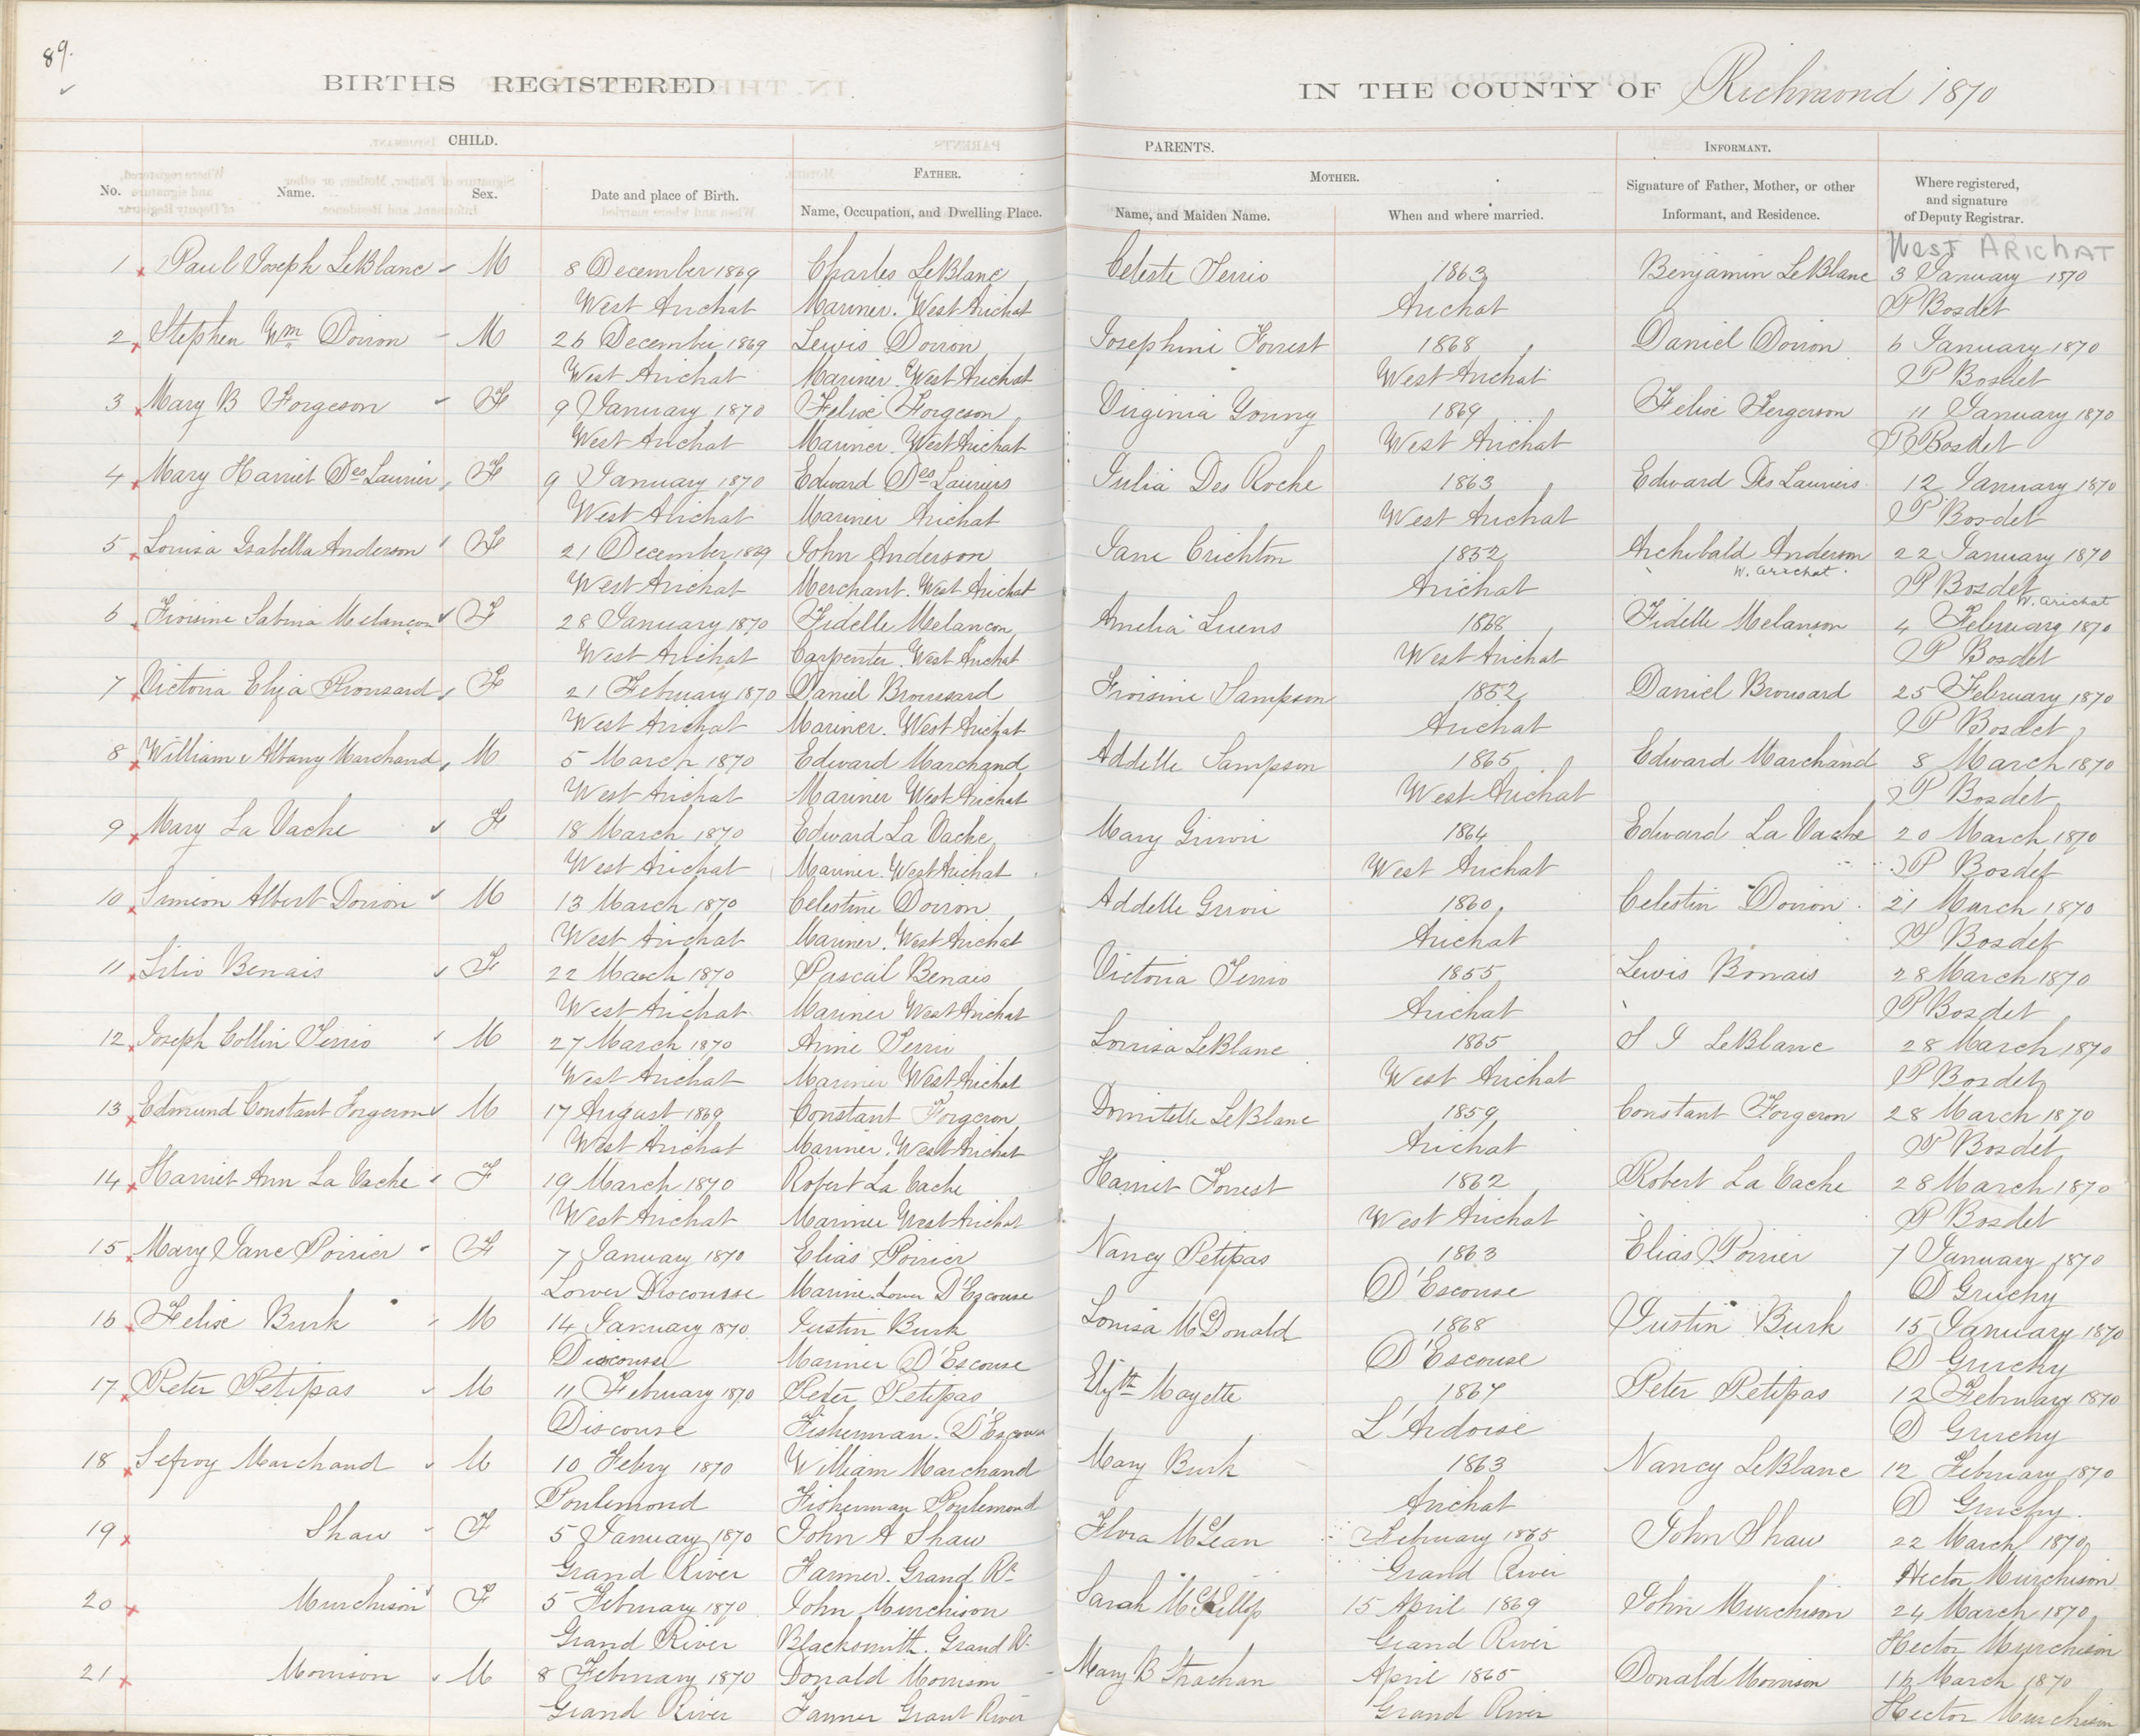 89.
BIRTHS REGISTERED IN THE COUNTY OF Richmond 1870
CHILD. PARENTS. INFORMANT.
FATHER. MOTHER.
No. Name. Sex. Date and place of Birth. Name, Occupation, and Dwelling Place. Name, and Maiden Name. When and where married. Signature of Father, Mother, or other Informant, and Residence. Where registered, and signature of Deputy Registrar.
West ARICHAT
1 Paul Joseph LeBlanc M 8 December 1869 Charles LeBlanc Celeste Terrio 1863 Benjamin LeBlanc 3 January 1870
West Arichat Mariner. West Arichat Arichat P Bosdet
2 Stephen Wm Doiron M 26 December 1869 Lewis Doiron Josephine Forrest 1868 Daniel Doiron 6 January 1870
West Arichat Mariner. West Arichat West Arichat P Bosdet
3 Mary B Forgeson F 9 January 1870 Felixe Forgeson Virginia Young 1869 Felixe Fergerson 11 January 1870
West Arichat Mariner. West Arichat West Arichat P Bosdet
4 Mary Harriet Des Laurier F 9 January 1870 Edward Des Lauriers Julia Des Roche 1863 Edward Des Lauriers 12 January 1870
West Arichat Mariner Arichat West Arichat P Bosdet
5 Louisa Isabella Anderson F 21 December 1869 John Anderson Jane Crichton 1852 Archibald Anderson 22 January 1870
West Arichat Merchant. West Arichat Arichat W. Arichat. P Bosdet
W. Arichat
6 Froisine Sabina Melançon F 28 January 1870 Fidelle Melancon Amelia Luens 1868 Fidelle Melanson 4 February 1870
West Arichat Carpenter. West Arichat West Arichat P Bosdet
7 Victoria Eliza Brousard F 21 February 1870 Daniel Broussard Froisine Sampson 1852 Daniel Brousard 25 February 1870
West Arichat Mariner. West Arichat Arichat P Bosdet
8 William Albany Marchand M 5 March 1870 Edward Marchand Addelle Sampson 1865 Edward Marchand 8 March 1870
West Arichat Mariner West Arichat West Arichat P Bosdet
9 Mary La Vache F 18 March 1870 Edward La Vache Mary Girroir 1864 Edward La Vache 20 March 1870
West Arichat Mariner. West Arichat West Arichat P Bosdet
10 Simeon Albert Doiron M 13 March 1870 Celestine Doiron Addelle 1860 Celestin Doiron 21 March 1870
West Arichat Mariner. West Arichat Arichat P Bosdet
11 Benais F 22 March 1870 Pascal Benais Victoria Terrio 1855 Lewis Bonais 28 March 1870
West Arichat Mariner West Arichat Arichat P Bosdet
12 Joseph Collin Terrio M 27 March 1870 Aimé Terrio Louisa LeBlanc 1865 S I LeBlanc 28 March 1870
West Arichat Mariner West Arichat West Arichat P Bosdet
13 Edmund Constant Forgeron M 17 August 1869 Constant Forgeron Domitelle LeBlanc 1859 Constant Forgeron 28 March 1870
West Arichat Mariner. West Arichat Arichat P Bosdet
14 Harriet Ann La Vache F 19 March 1870 Robert La Vache Harriet Forrest 1862 Robert La Vache 28 March 1870
West Arichat Mariner West Arichat West Arichat P Bosdet
15 Mary Jane Poirier F 7 January 1870 Elias Poirier Nancy Petipas 1863 Elias Poirier 7 January 1870
Lower Discousse Marine. Lower D'Escouse D'Escouse D Gruchy
16 Felixe Burk M 14 January 1870 Justin Burk Louisa McDonald 1868 Justin Burk 15 January 1870
Discousse Mariner D'Escouse D'Escouse D Gruchy
17 Peter Petipas M 11 February 1870 Peter Petipas Elizth Mayette 1867 Peter Petipas 12 February 1870
Discouse Fisherman. D'Escouse L'Ardoise D Gruchy
18 Sefroy Marchand M 10 Febry 1870 William Marchand Mary Burk 1863 Nancy LeBlanc 12 February 1870
Poulemond Fisherman Poulemond Arichat D Gruchy.
19 Shaw F 5 January 1870 John A Shaw Flora McLean February 1865 John Shaw 22 March 1870
Grand River Farmer. Grand Rr Grand River Hector Murchison
20 Murchison F 5 February 1870 John Murchison Sarah 15 April 1869 John Murchison 24 March 1870
Grand River Blacksmith. Grand R. Grand River Hector Murchison
21 Morrison M 8 February 1870 Donald Morrison Mary B Strachan April 1865 Donald Morrison 16 March 1870
Grand River Farmer Grant River Grand River Hector Murchison